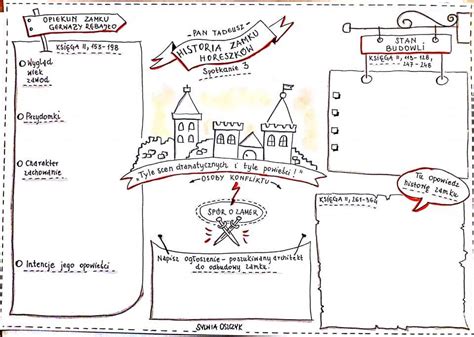 OPIEKUN ZAMKU
GERWAZY RĘBAJŁO
KSIĘGA II, 153-198
Wygląd
wiek
zawód
Przydomki
Charakter
zachowanie
Intencje jego opowieści
- PAN TADEUSZ -
HISTORIA ZAMKU
HORESZKÓW
Spotkanie 3
"Tyle scen dramatycznych i tyle powieści!"
OSOBY KONFLIKTU
SPÓR O ZAMEK
Napisz ogłoszenie - poszukiwany architekt
do odbudowy zamku.
STAN
BUDOWLI
KSIĘGA II, 113-128,
-247-248
Tu opowiedz
historię zamku
KSIĘGA II, 261-364
SYLWIA OSZCZYK